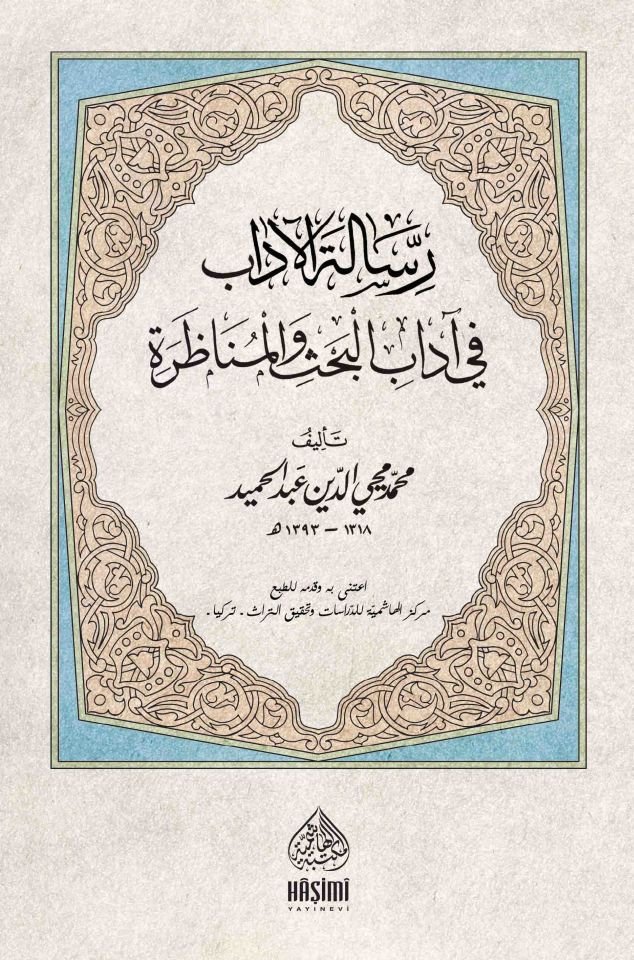 رِسَّالَةُ الْآدَابِ
فِي آدَابِ الْبَحْثِ وَالْمُنَاظَرَةِ
تَأْلِيفُ
محمّد محيي الدّين عَبد الحميد
١٣١٨ - ١٣٩٣ هـ
اعتنى به وقدمه للطبع
مركز الهاشميّة للدّراسات وتحقيق التراث - تركيا -
مكتبة الهاشمية
HÂŞİMÎ
YAYINEVİ